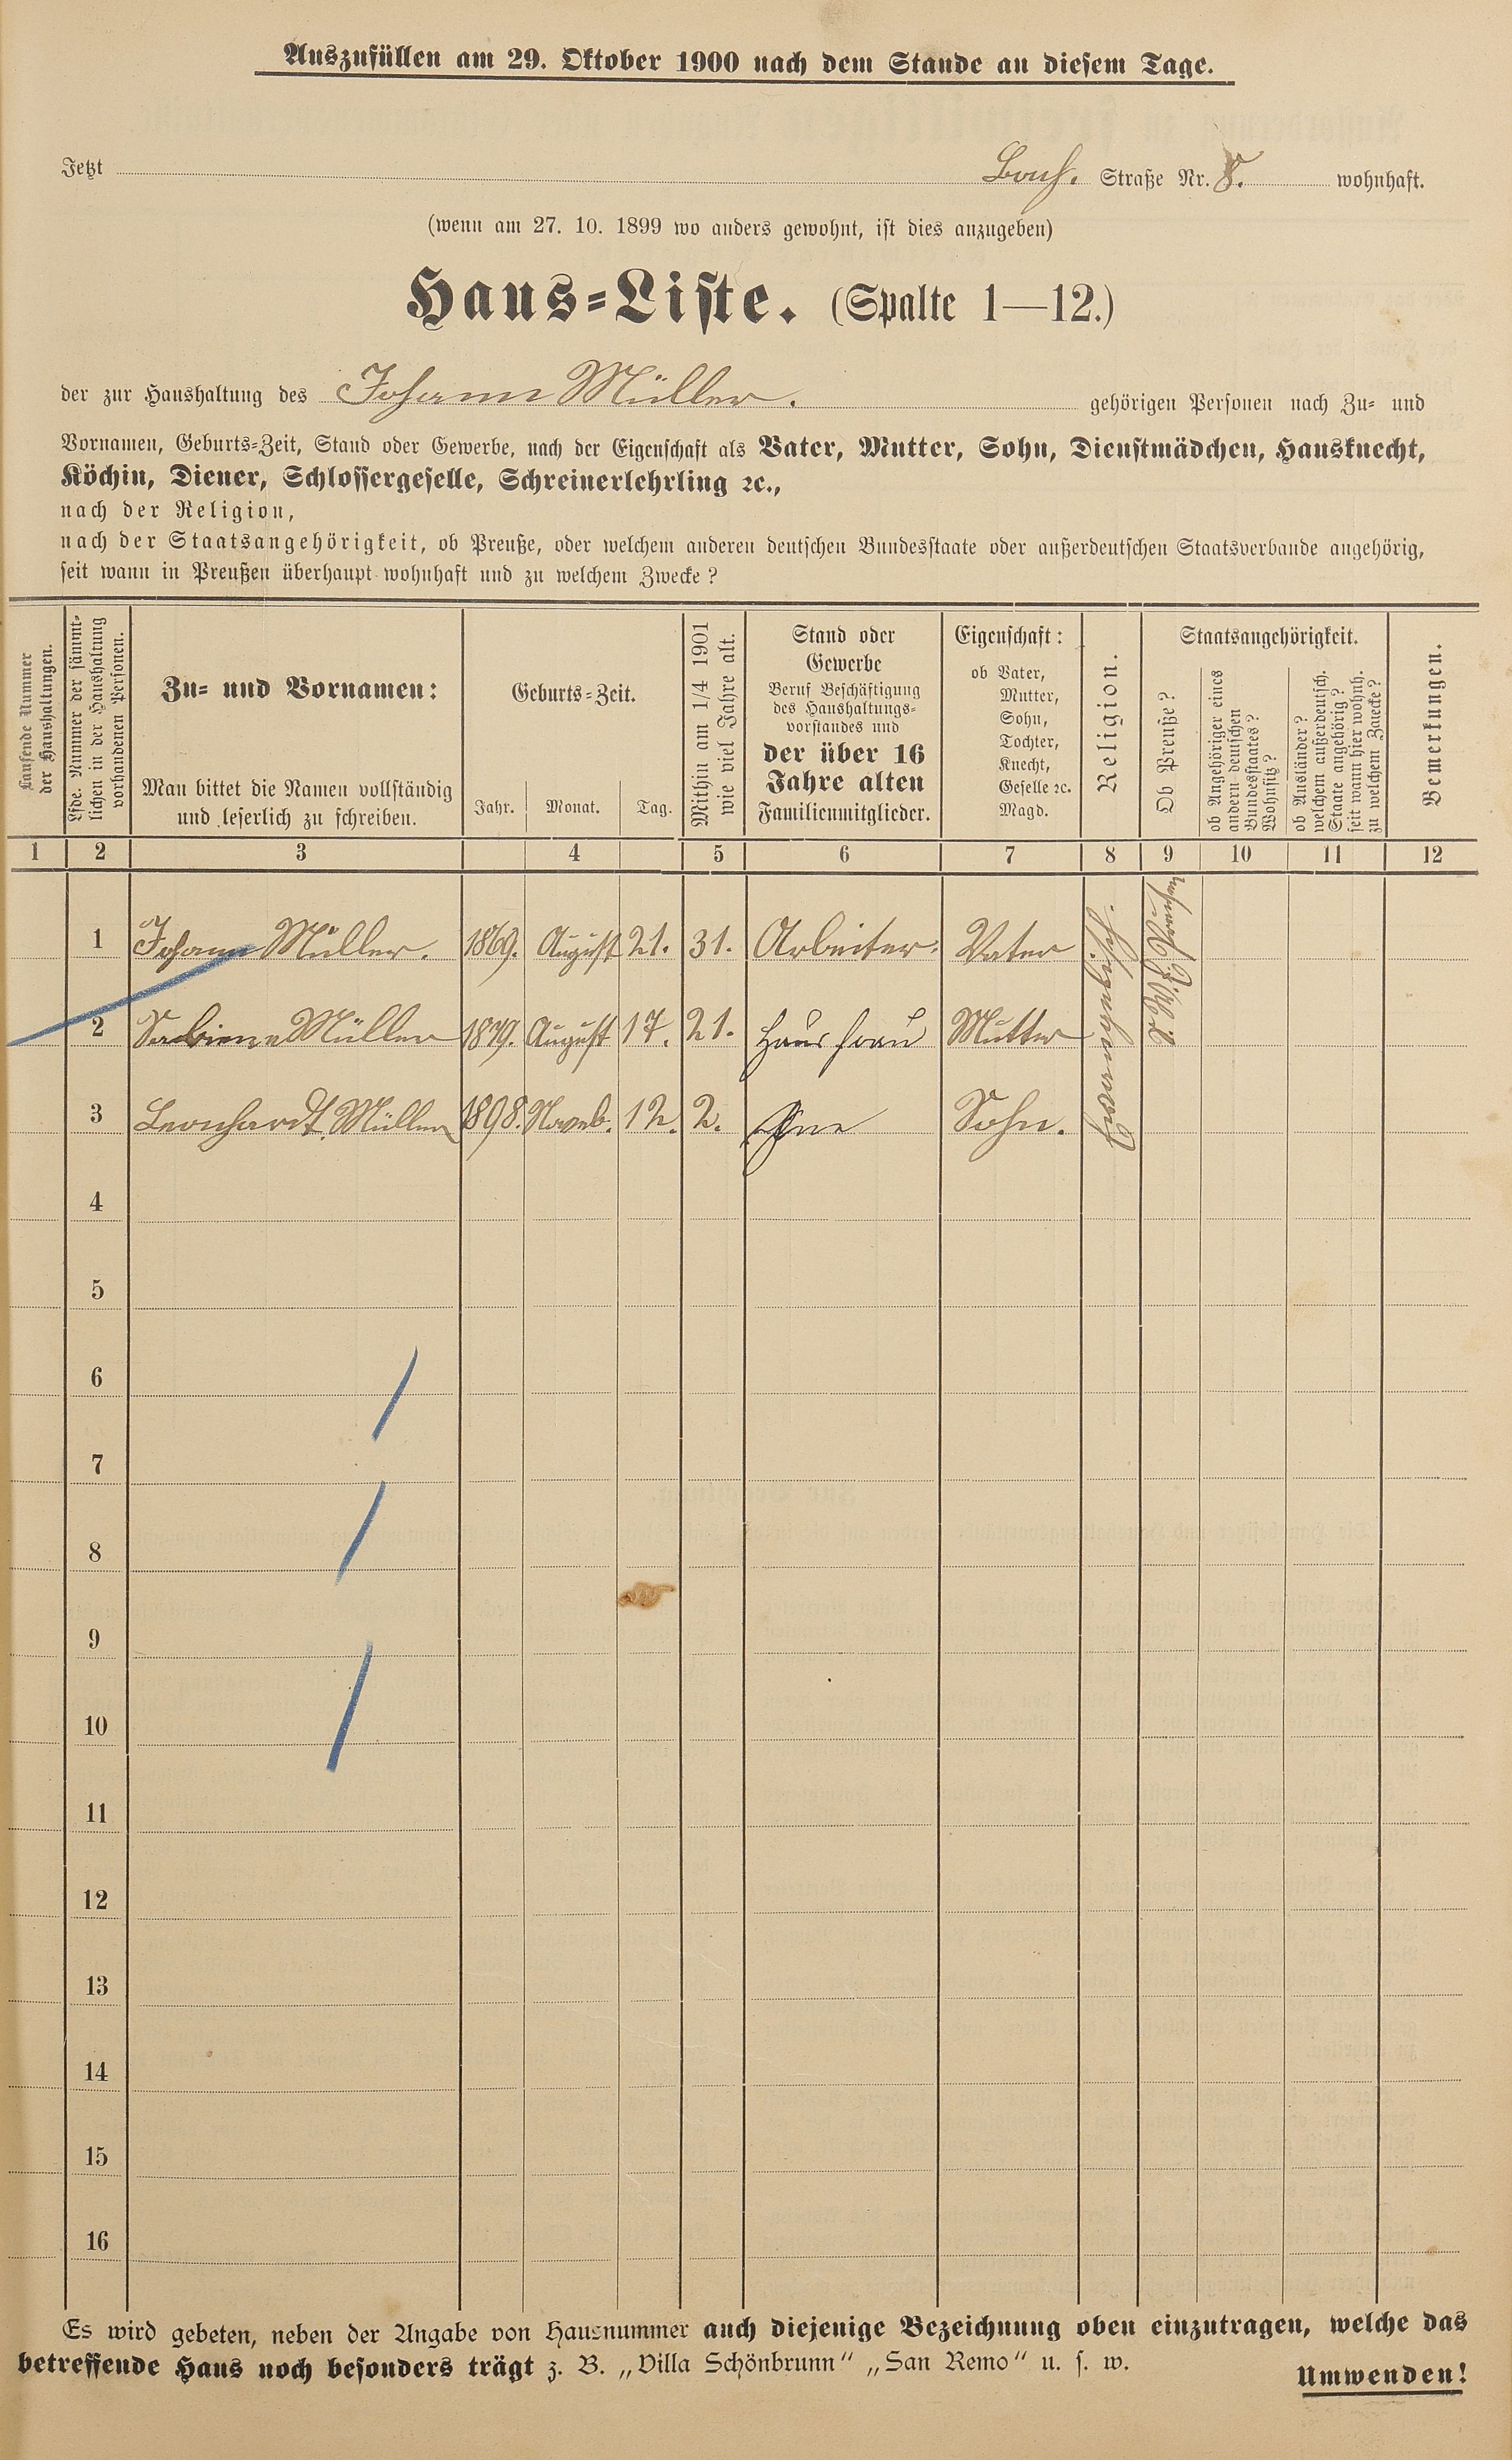 Auszufüllen am 29. Oktober 1900 nach dem Stande an diesem Tage.
Jetzt Straße Nr. 8. wohnhaft.
(wenn am 27. 10. 1899 wo anders gewohnt, ist dies anzugeben)
Haus=Liste. (Spalte 1—12.)
der zur Haushaltung des Johann Müller. gehörigen Personen nach Zu= und
Vornamen, Geburts=Zeit, Stand oder Gewerbe, nach der Eigenschaft als Vater, Mutter, Sohn, Dienstmädchen, Hausknecht,
Köchin, Diener, Schlossergeselle, Schreinerlehrling ꝛc.,
nach der Religion,
nach der Staatsangehörigkeit, ob Preuße, oder welchem anderen deutschen Bundesstaate oder außerdeutschen Staatsverbande angehörig,
seit wann in Preußen überhaupt wohnhaft und zu welchem Zwecke?
Laufende Nummer
der Haushaltungen.
Lfde. Nummer der sämmt=
lichen in der Haushaltung
vorhandenen Personen.
Zu= und Vornamen:
Man bittet die Namen vollständig
und leserlich zu schreiben.
Geburts=Zeit.
Jahr. Monat. Tag.
Mithin am 1/4 1901
wie viel Jahre alt.
Stand oder
Gewerbe
Beruf Beschäftigung
des Haushaltungs=
vorstandes und
der über 16
Jahre alten
Familienmitglieder.
Eigenschaft:
ob Vater,
Mutter,
Sohn,
Tochter,
Knecht,
Geselle ꝛc.
Magd.
Religion.
Staatsangehörigkeit.
Ob Preuße?
ob Angehöriger eines
andern deutschen
Bundesstaates?
Wohnsitz?
ob Ausländer?
welchem außerdeutsch.
Staate angehörig?
seit wann hier wohnh.
zu welchem Zwecke?
Bemerkungen.
1 2 3 4 5 6 7 8 9 10 11 12
1 Johann Müller. 1869. August 21. 31. Arbeiter. Vater
2 Sabiena Müller 1879. August 17. 21. Hausfrau Mutter
3 Leonhardt Müller 1898. Noveb. 12. 2. Sohn.
4
5
6
7
8
9
10
11
12
13
14
15
16
Es wird gebeten, neben der Angabe von Hausnummer auch diejenige Bezeichnung oben einzutragen, welche das
betreffende Haus noch besonders trägt z. B. „Villa Schönbrunn“ „San Remo“ u. s. w.
Umwenden!